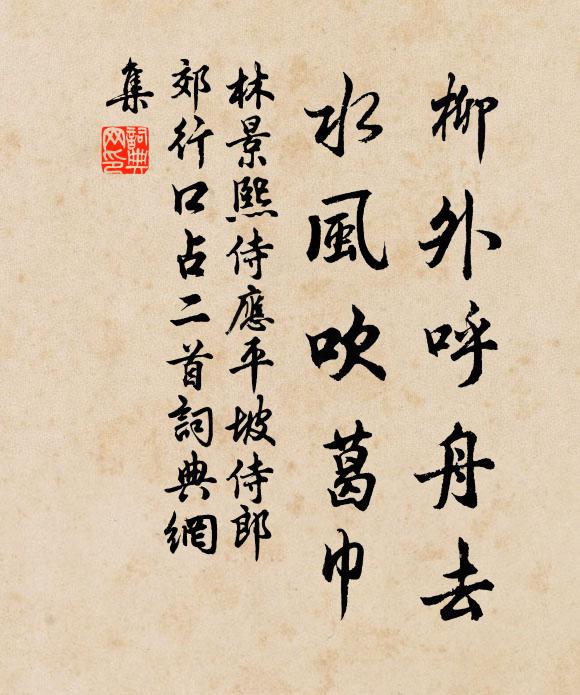 柳外呼舟去
水風吹葛巾
林景熙侍應平坡侍郎
郊行口占二首詞典網
集
詞典
网印